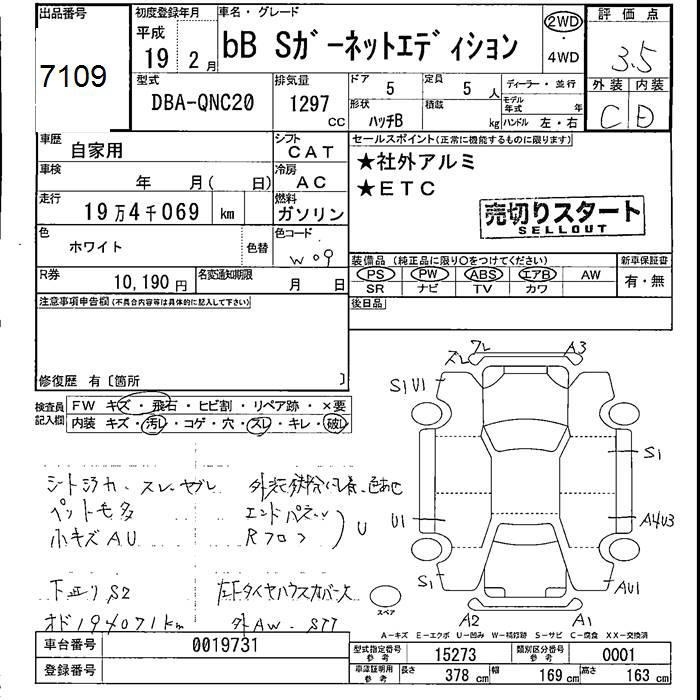 出品番号
7109
初度登録年月
平成
19年 2月
車名・グレード
bB Sガーネットエディション
2WD
・
4WD
評価点
3.5
外装 内装
C D
型式
DBA-QNC20
排気量
1297
CC
ドア
5
定員
5人
形状
ハッチB
積載
kg
ディーラー・並行
モデル年式
年
ハンドル 左・右
車歴
自家用
シフト
CAT
車検
年 月( 日)
冷房
AC
走行
19万4千069 km
燃料
ガソリン
色
ホワイト
色替
色コード
W09
R券
10,190円
名変通知期限
月 日
セールスポイント(正常に機能するものに限ります)
★社外アルミ
★ETC
売切りスタート
SELLOUT
装備品(純正品に限り○をつけてください)
新車保証書
PS PW ABS エアB AW
SR ナビ TV カワ
有・無
後日品
注意事項申告欄(不具合内容等は具体的に記入して下さい)
修復歴 有〔箇所 〕
検査員
記入欄
FW キズ・飛石・ヒビ割・リペア跡・×要
内装 キズ・汚レ・コゲ・穴・スレ・キレ・破レ
スレ フレ A3
S1 U1
S1
U1
A4U3
S1
AU1
A2
A1
スペア
シート スレ
ペット毛多
小キズAU
エンドパネル
Rフロア
U
下廻りS2
左FタイヤハウスカバーX
オド194071km
外AW
A−キズ E−エクボ U−凹み W−補修跡 S−サビ C−腐食 XX−交換済
車台番号
0019731
登録番号
型式指定番号
参考
15273
類別区分番号
参考
0001
車検証明書
参考
長さ
378 cm
幅
169 cm
高さ
163 cm